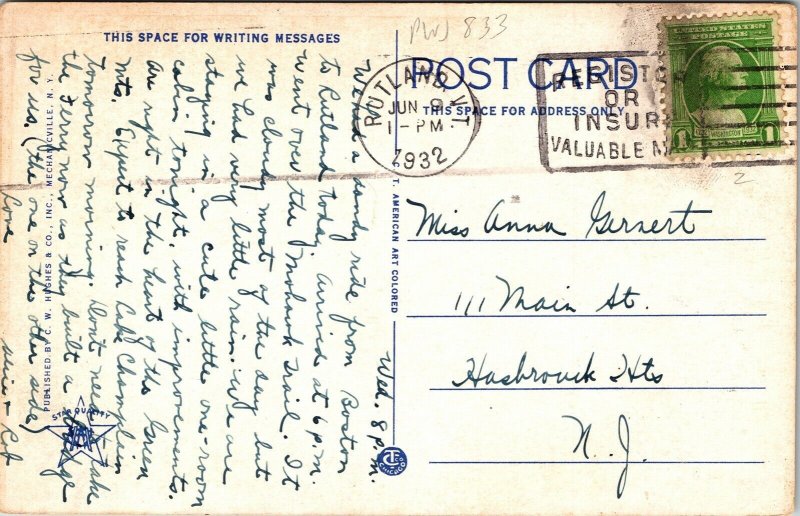 PWJ 833
THIS SPACE FOR WRITING MESSAGES
POST CARD
THIS SPACE FOR ADDRESS ONLY
RUTLAND, VT.
JUN 9
1 - PM
1932
REGISTER
OR
INSURE
VALUABLE M
UNITED STATES POSTAGE
WASHINGTON
1 1
2
Wed. 8 p.m.
We had a dandy ride from Boston
to Rutland today, arrived at 6 p.m.
Went over the Mohawk Trail. It
was cloudy most of the day but
we had very little rain. We are
staying in a cute little one-room
cabin tonight, with improvements.
Are right in the heart of the Green
Mts. Expect to reach Lake Champlain
tomorrow morning. Don't need to take
the ferry now as they built a bridge
for us. (the one on the other side)
Love
&
Miss Anna Gernert
111 Main St.
Hasbrouck Hts
N. J.
PUBLISHED BY C. W. HUGHES & CO., INC., MECHANICVILLE, N. Y.
STAR QUALITY
C. T. AMERICAN ART COLORED
CHICAGO